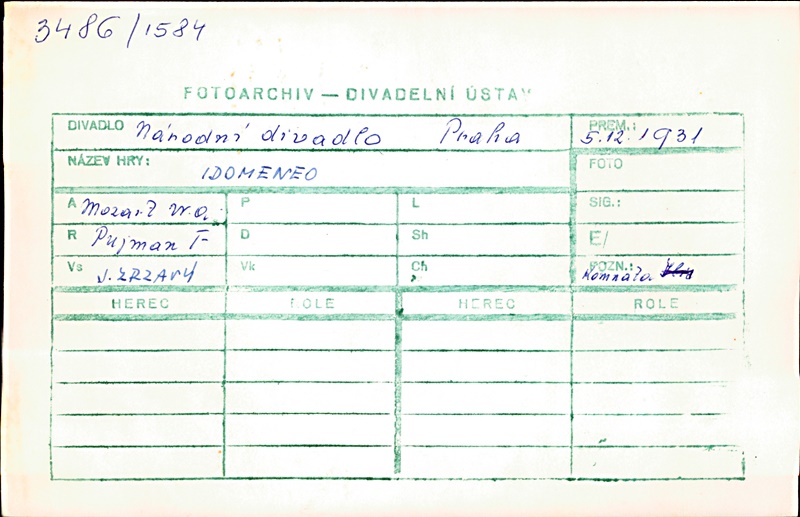 3486/1584
FOTOARCHIV — DIVADELNÍ ÚSTAV
DIVADLO Národní divadlo Praha PREM.: 5.12.1931
NÁZEV HRY: IDOMENEO FOTO
A Mozart W.A. P L SIG.:
R Pujman F D Sh E/
Vs J. ZRZAVÝ Vk Ch POZN.: Komnata
HEREC ROLE HEREC ROLE